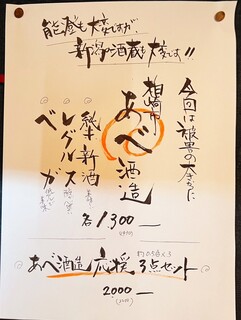 能登も大変ですが、
新潟の酒蔵も大変です!!
今回は被害の大きかった
柏崎市
あべ酒造
純米新酒
レグルス
ベガ
各1300
あべ酒造応援
3点セット
2000